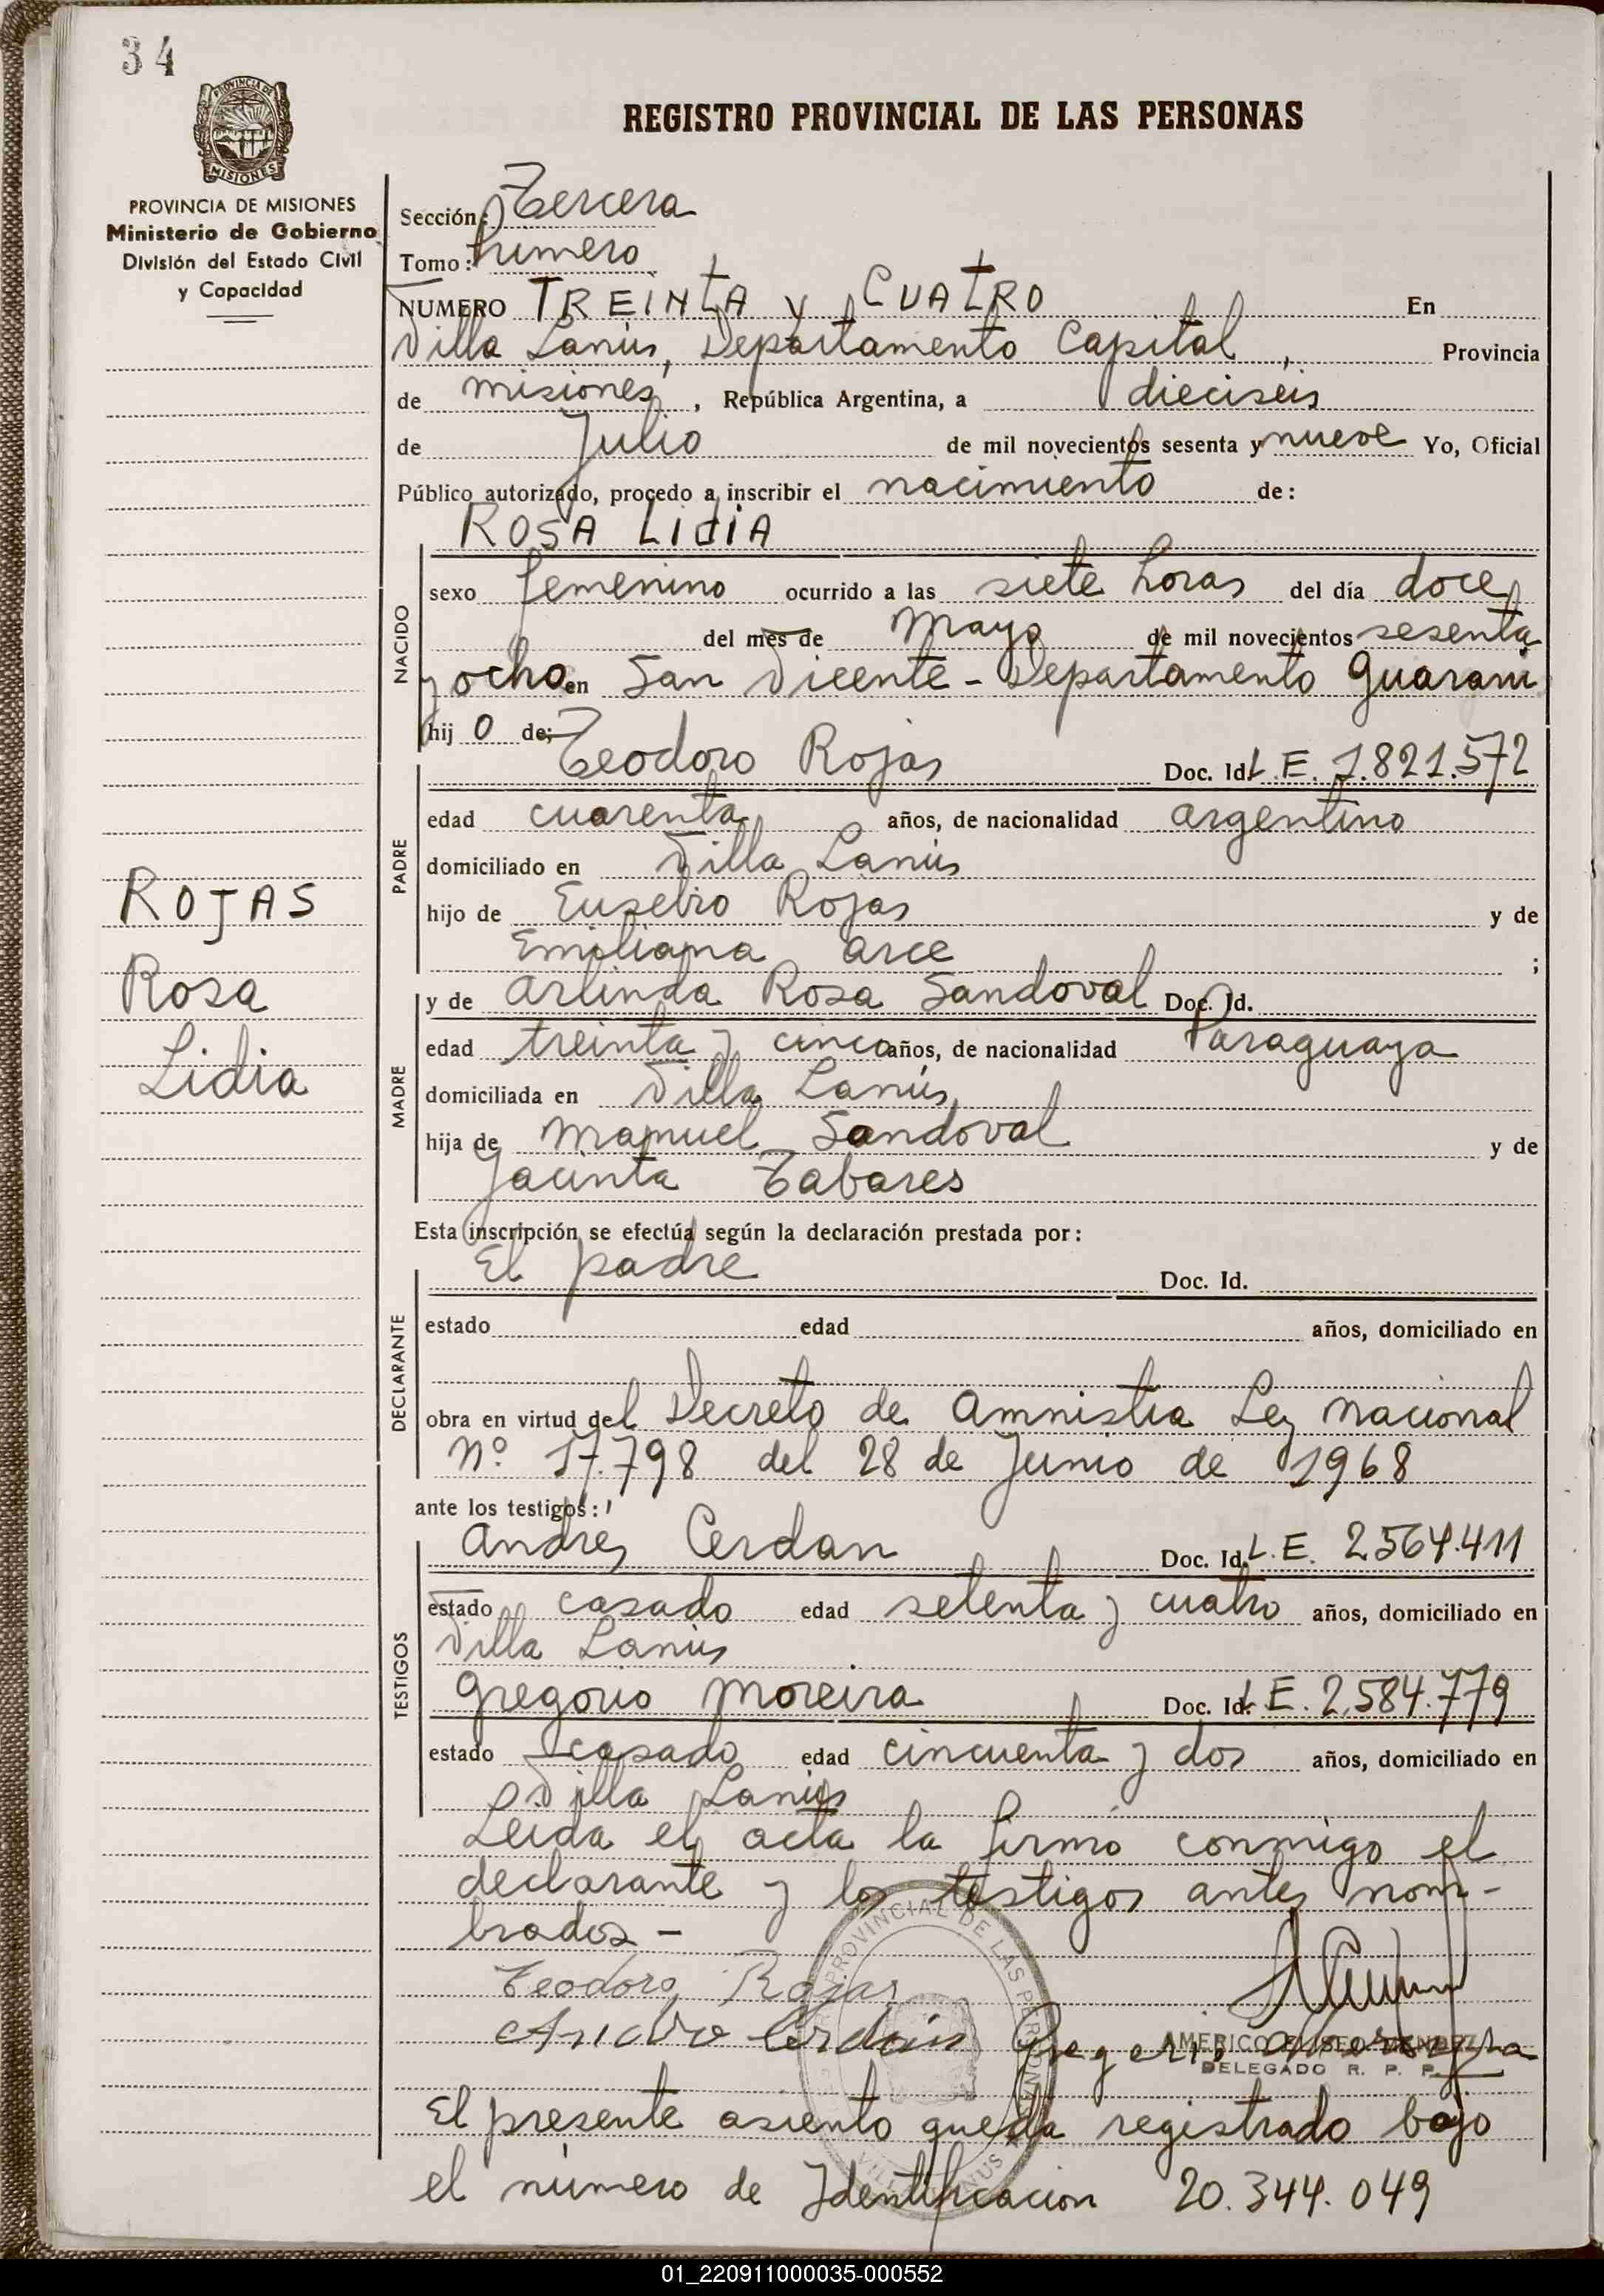 34
PROVINCIA DE
MISIONES
REGISTRO PROVINCIAL DE LAS PERSONAS
PROVINCIA DE MISIONES
Ministerio de Gobierno
División del Estado Civil
y Capacidad
Sección: Tercera
Tomo: Primero
NUMERO TREINTA y CUATRO En
Villa Lanús, Departamento Capital, Provincia
de misiones, República Argentina, a dieciseis
de Julio de mil novecientos sesenta y nueve Yo, Oficial
Público autorizado, procedo a inscribir el nacimiento de:
ROSA LIdiA
NACIDO
sexo femenino ocurrido a las siete horas del día doce
del mes de Mayo de mil novecientos sesenta
y ocho en San Vicente - Departamento Guarani
hij o de;
PADRE
Teodoro Rojas Doc. Id. L.E. 1.821.572
edad cuarenta años, de nacionalidad argentino
domiciliado en Villa Lanús
hijo de Eusebio Rojas y de
Emiliana arce ;
ROJAS
Rosa
Lidia
MADRE
y de Arlinda Rosa Sandoval Doc. Id.
edad treinta y cinco años, de nacionalidad Paraguaya
domiciliada en Villa Lanús
hija de Manuel Sandoval y de
Jacinta Tabares
Esta inscripción se efectúa según la declaración prestada por:
DECLARANTE
El padre Doc. Id.
estado edad años, domiciliado en
obra en virtud del Decreto de Amnistia Ley Nacional
Nº 17.798 del 28 de Junio de 1968
ante los testigos:
TESTIGOS
Andres Cerdan Doc. Id. L.E. 2.564.411
estado casado edad setenta y cuatro años, domiciliado en
Villa Lanús
Gregorio Moreira Doc. Id. L.E. 2.584.779
estado casado edad cincuenta y dos años, domiciliado en
Villa Lanús
Leida el acta la firmo conmigo el
declarante y los testigos antes nom-
brados -
Teodoro Rojas
Cerdan Gregorio
AMERICO ELISEO MENDEZ
DELEGADO R. P. P.
PROVINCIAL DE LAS PERSONAS
VILLA LANUS
El presente asiento queda registrado bajo
el número de Identificacion 20.344.049
01_220911000035-000552